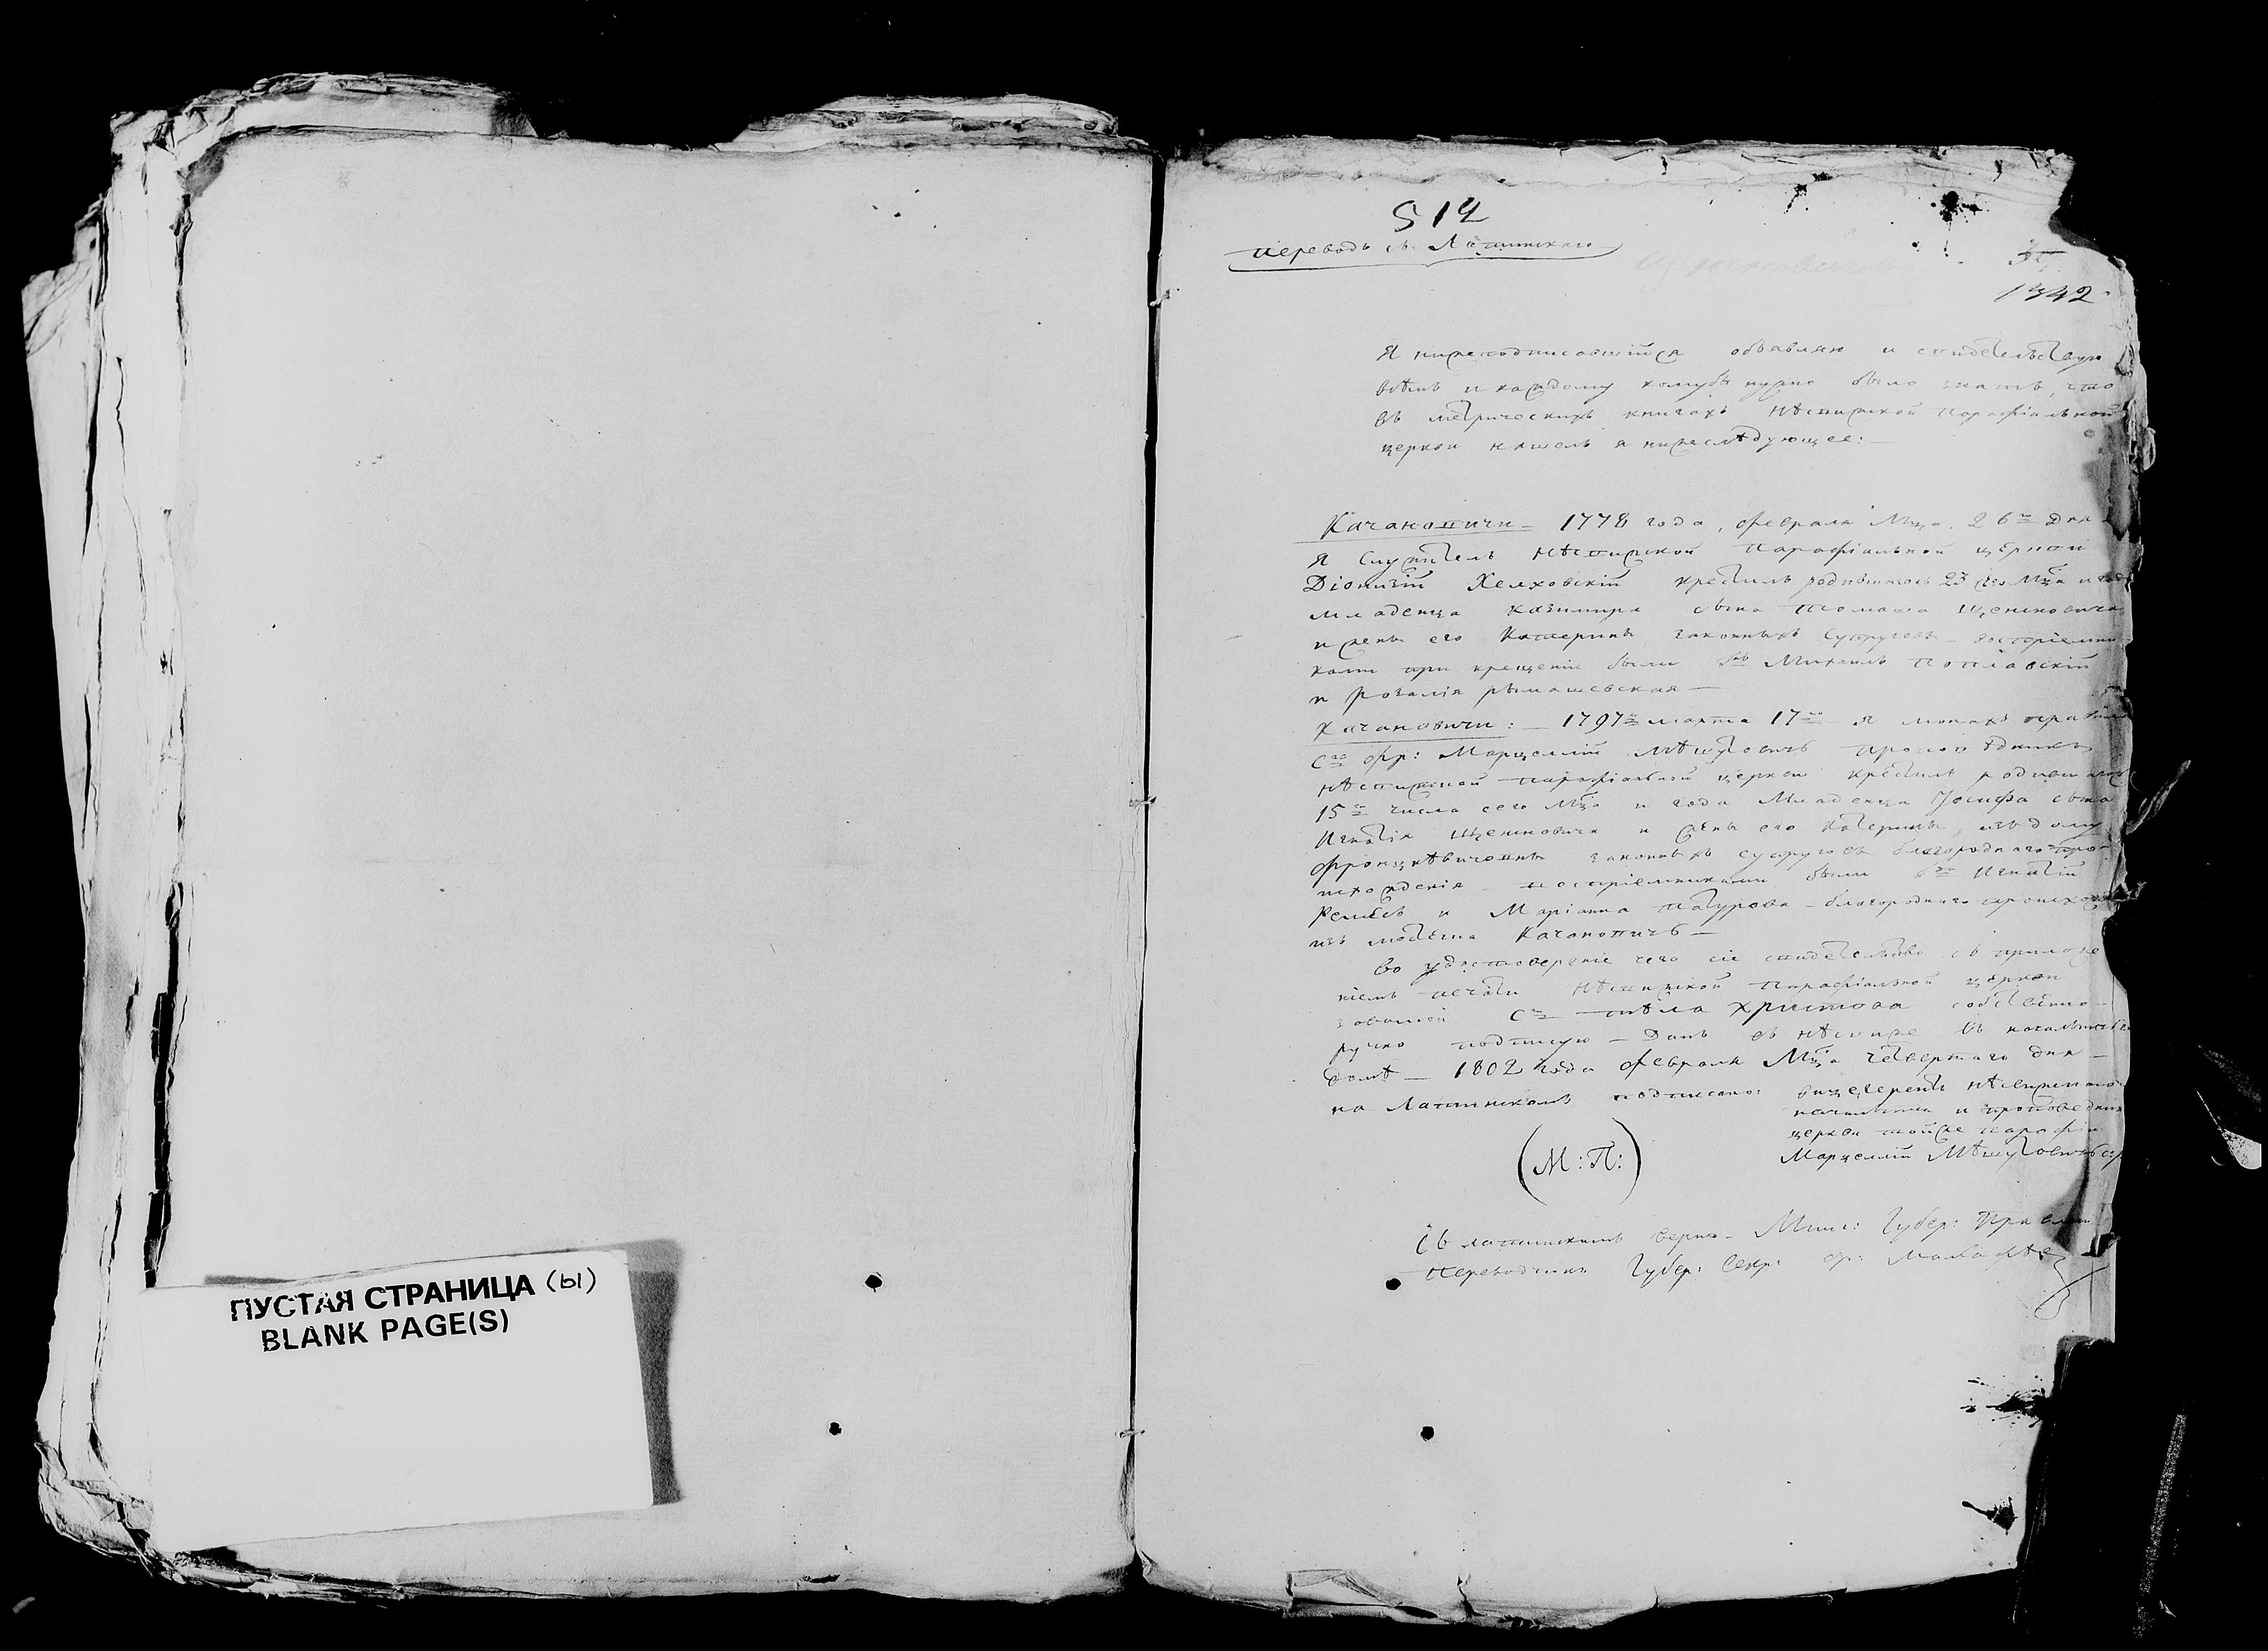 ПУСТАЯ СТРАНИЦА (ы)
BLANK PAGE(S)
514
переводъ съ Латинскаго
1342
Я нижеподписавшійся объявляю и свидетельствую
всѣмъ и каждому комубъ нужно было знать, что
въ метрическихъ книгахъ Нѣсвижской Парафіальной
церкви нашелъ я нижеслѣдующее: —
Качановичи — 1778 года, февраля Мца. 26го дня
Я Служитель Нѣсвижской Парафіальной церкви
Діонизій Хелховскій крестилъ родившагось 23 сего Мца и года
младенца Казимира сына Томаша Щенсновича
и жены его Катерины законныхъ Супруговъ — воспріемни
ками при крещеніи были Михаилъ Поплавскій
и Розалія рымашевская —
Качановичи: — 1797го марта 17го я монахъ правила
Сго фр: Марцеллій проповѣдникъ
Нѣсвижской парафіальной церкви крестилъ родившагось
15го числа сего Мца и года Младенца Іосифа сына
Игнатія Щенсновича и жены его Катерины, изъ дому
законныхъ супруговъ благороднаго про
исхожденія — воспріемниками были Игнатій
и Маріанна — благороднаго происхожде
изъ Качановичъ —
Во удостовереніе чего сіе свидетельство съ приложе
ніемъ печати Нѣсвижской Парафіальной церкви
зовомой Сго тѣла Христова собственно
ручно подписую — Данъ въ Нѣсвиже въ
домѣ — 1802 года февраля Мца четвертаго дня —
на Латинскомъ подписано: вицегерентъ Нѣсвижскаго
и проповедникъ
церкви тойже парафіи
Марцеллій
(М: П:)
Съ латинскимъ верно — Минс: Губер: Правлен
Переводчикъ Губер: Секр: